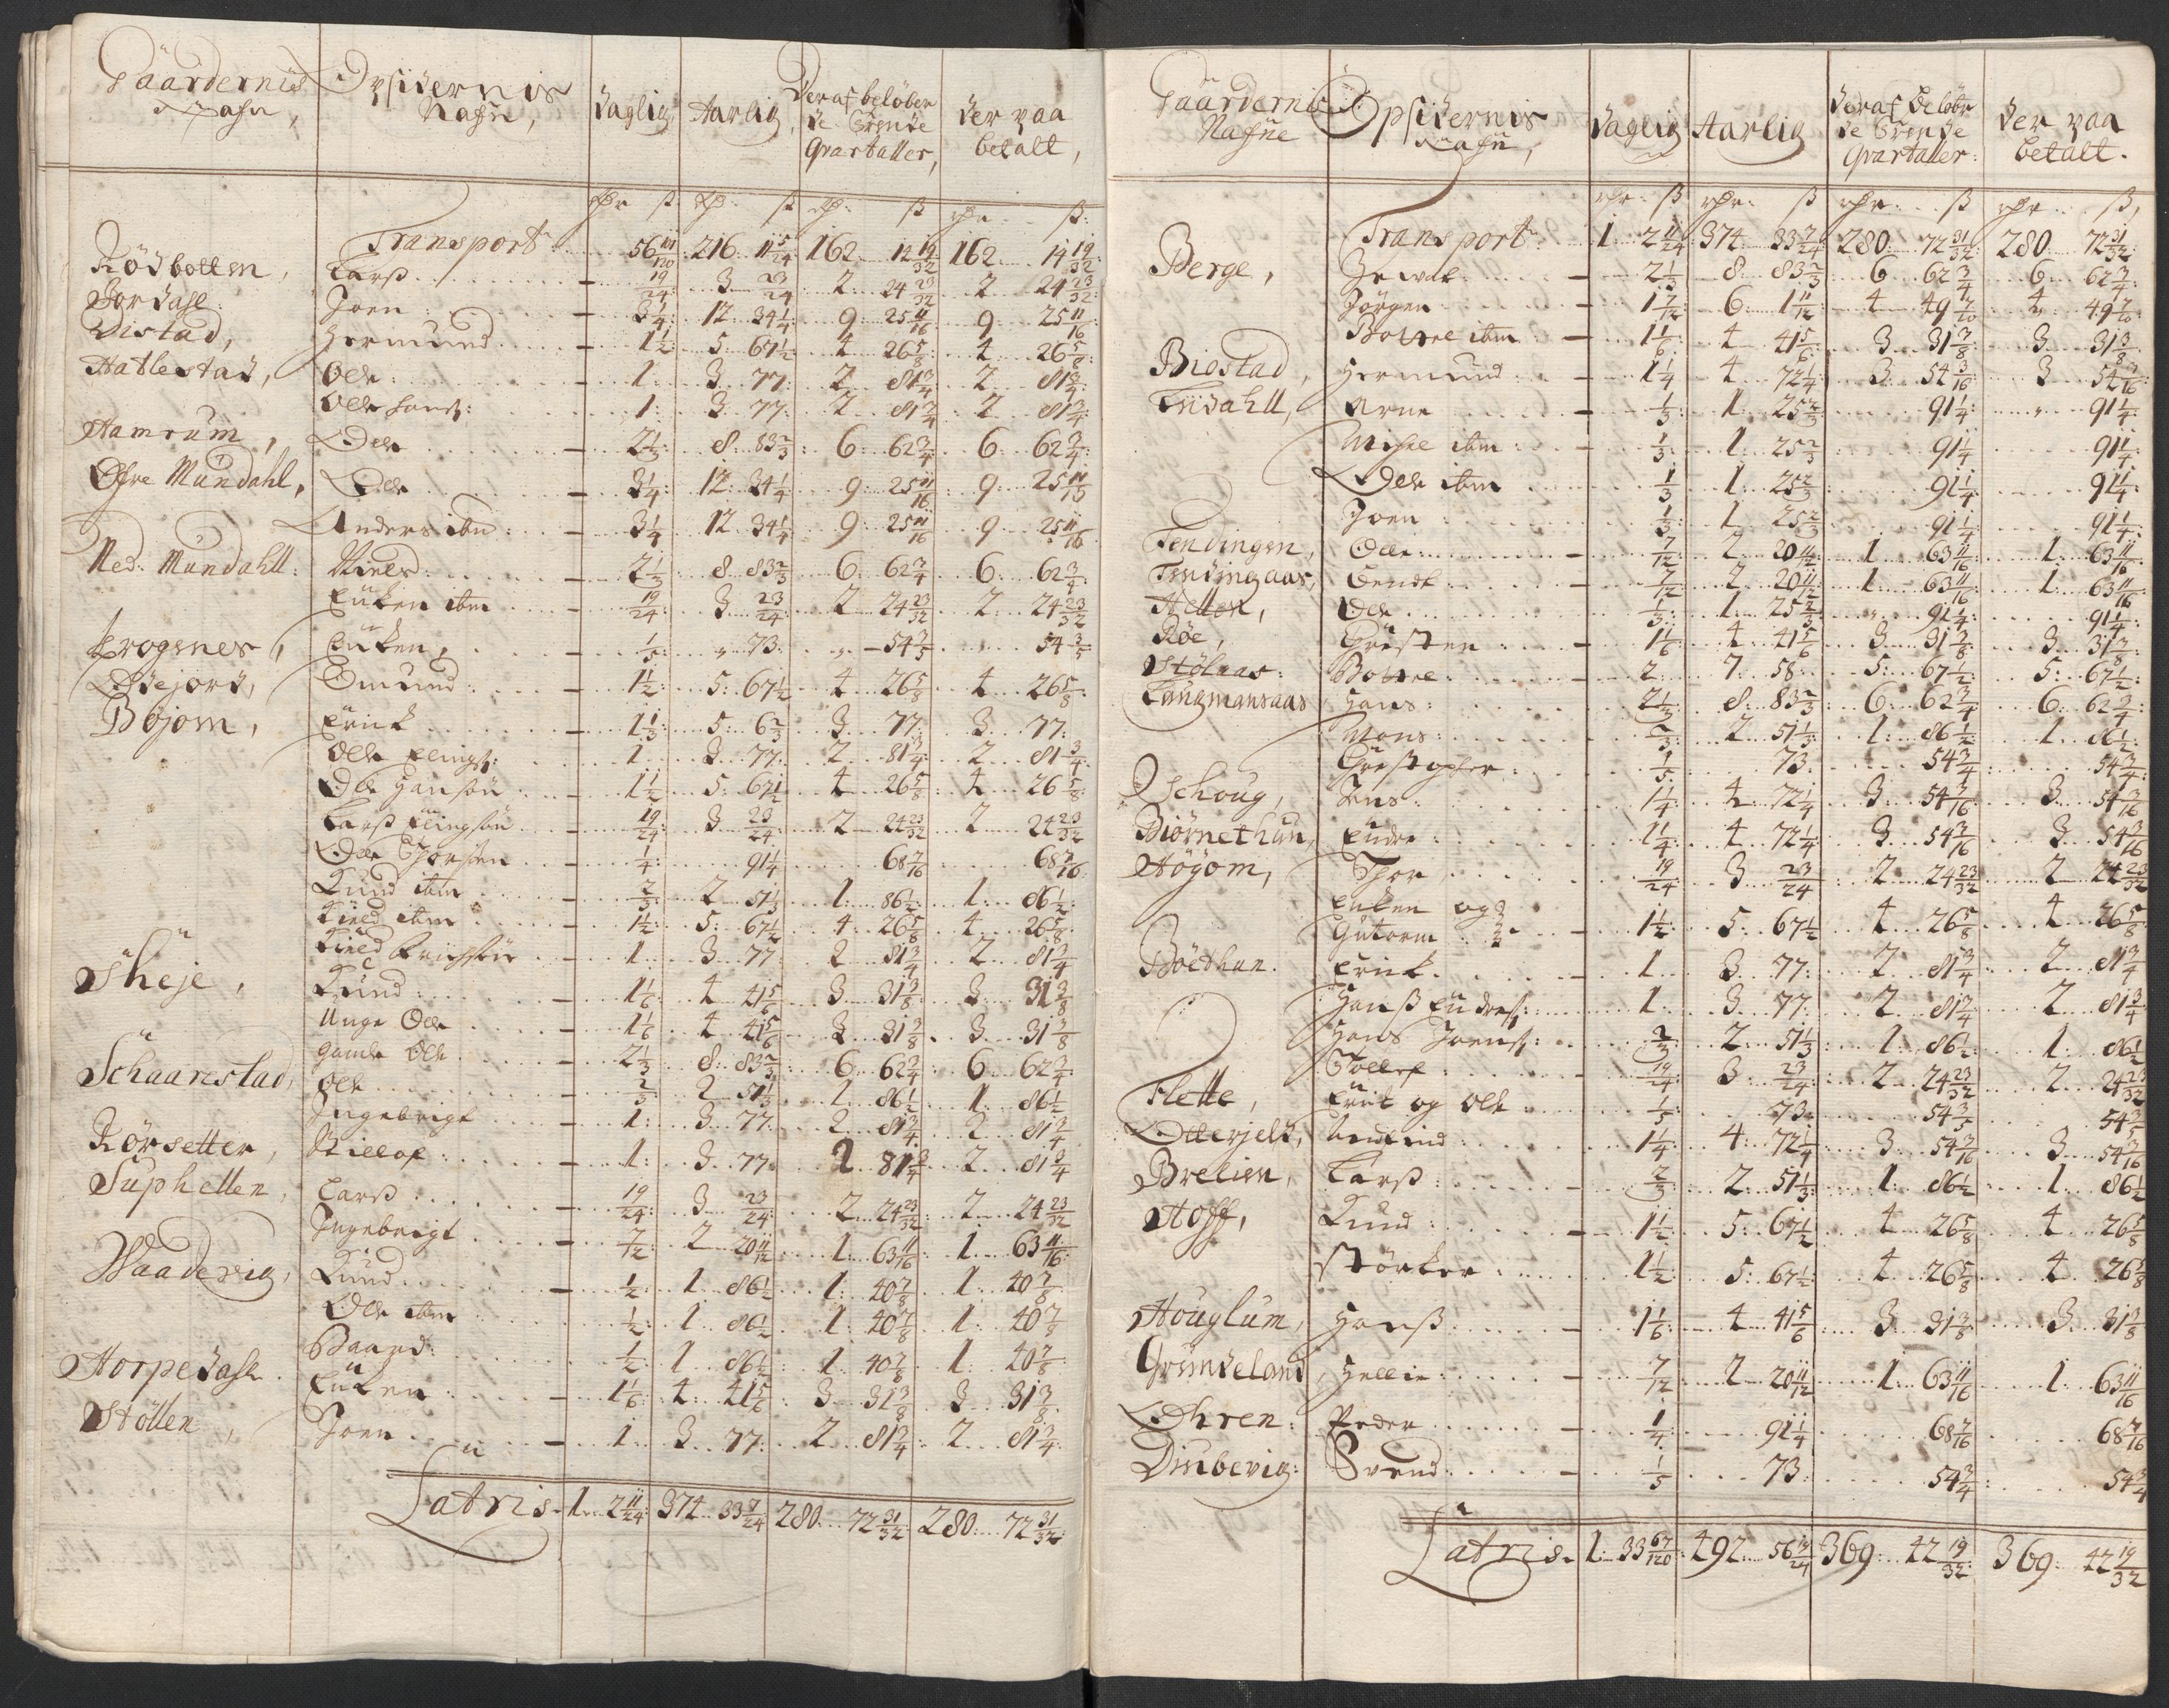 Gaardernis Nafn, Opsidernis Nafn, daglig Aarlig, Deraf beløber de Trende Qvartaller, der paa betalt,
rdr ß rd ß rd ß rdr ß
Transport 56 111/120 216 11 5/24 162 12 19/32 162 14 19/32
Rödbotten, Larß 19/24 3 23/24 2 24 23/32 2 24 23/32
Jordahl Joen 3 1/4 12 34 1/4 9 25 11/16 9 25 11/16
Distad, Hermund 1 1/2 5 67 1/2 4 26 5/8 4 26 5/8
Hatlestad, Olle 1 3 77 2 81 3/4 2 81 3/4
Olle Hans: 1 3 77 2 81 3/4 2 81 3/4
Hamrum, Olle 2 1/3 8 83 2/3 6 62 3/4 6 62 3/4
Øfre Mundahl, Olle 3 1/4 12 34 1/4 9 25 11/16 9 25 11/16
Anders ibm 3 1/4 12 34 1/4 9 25 11/16 9 25 11/16
Ned: Mundahll: Niels 2 1/3 8 83 2/3 6 62 3/4 6 62 3/4
Euken ibm 19/24 3 23/24 2 24 23/32 2 24 23/32
Frogenes, Euken, 1/5 " 73 " 54 3/5 " 54 3/5
Odejord, Omund 1 1/2 5 67 1/2 4 26 5/8 4 26 5/8
Böjom, Erick 1 1/3 5 6 2/3 3 77 3 77
Olle Elings: 1 3 77 2 81 3/4 2 81 3/4
Ole Hansön 1 1/2 5 67 1/2 4 26 5/8 4 26 5/8
Larß Elingsön 19/24 3 23/24 2 24 23/32 2 24 23/32
Olle Thorsen 1/4 91 1/4 68 7/16 68 7/16
Knud ibm 2/3 2 51 1/3 1 86 1/2 1 86 1/2
Kield ibm 1 1/2 5 67 1/2 4 26 5/8 4 26 5/8
Kield Erichsön 1 3 77 2 81 3/4 2 81 3/4
Sheje, Knud 1 1/6 4 41 5/6 3 31 3/8 3 31 3/8
Unge Olle 1 1/6 4 41 5/6 3 31 3/8 3 31 3/8
Gamle Olle 2 1/3 8 83 2/3 6 62 3/4 6 62 3/4
Schaarestad, Olle 2/3 2 51 1/3 1 86 1/2 1 86 1/2
Ingebrigt 1 3 77 2 81 3/4 2 81 3/4
Rörsetter, Stillof 1 3 77 2 81 3/4 2 81 3/4
Suphellen, Larß 19/24 3 23/24 2 24 23/32 2 24 23/32
Ingebrigt 7/12 2 20 11/12 1 63 11/16 1 63 11/16
Waadevig, Knud 1/2 1 86 1/2 1 40 7/8 1 40 7/8
Olle ibm 1/2 1 86 1/2 1 40 7/8 1 40 7/8
Baard 1/2 1 86 1/2 1 40 7/8 1 40 7/8
Horpedahl Euken 1 1/6 4 41 5/6 3 31 3/8 3 31 3/8
Stöllen, Joen 1 3 77 2 81 3/4 2 81 3/4
Latris 1 2 11/24 374 33 7/24 280 72 31/32 280 72 31/32
Gaardernis Nafne Opsidernis Nafn, daglig Aarlig deraf Beløbr de Trende Qvartaller: der paa betalt.
rdr ß rdr ß rdr ß rdr ß
Transport 1 2 11/24 374 33 7/24 280 72 31/32 280 72 31/32
Berge, 2 1/3 8 83 2/3 6 62 3/4 6 62 3/4
Jörgen 1 7/12 6 1 11/12 4 49 7/16 4 49 7/16
ibm 1 1/6 4 41 5/6 3 31 3/8 3 31 3/8
Biostad, Hermund 1 1/4 4 72 1/4 3 54 3/16 3 54 3/16
Endahll, Arne 1/3 1 25 2/3 91 1/4 " 91 1/4
ibm 1/3 1 25 2/3 91 1/4 91 1/4
Olle ibm 1/3 1 25 2/3 91 1/4 91 1/4
Joen 1/3 1 25 2/3 91 1/4 91 1/4
Tendingen, Olle 7/12 2 20 11/12 1 63 11/16 1 63 11/16
Tendingaas, 7/12 2 20 11/12 1 63 11/16 1 63 11/16
Hellen, Olle 1/3 1 25 2/3 " 91 1/4 91 1/4
Röe, Christen 1 1/6 4 41 5/6 3 31 3/8 3 31 3/8
Stölaas 2 7 58 5 67 1/2 5 67 1/2
Langmansaas Hans 2 1/3 8 83 2/3 6 62 3/4 6 62 3/4
Mons 2/3 2 51 1/3 1 86 1/2 1 86 1/2
Christopher 1/5 73 54 3/4 54 3/4
Schoug, Jens 1 1/4 4 72 1/4 3 54 3/16 3 54 3/16
Biörnethun, Endre 1 1/4 4 72 1/4 3 54 3/16 3 54 3/16
Högom, Thor 19/24 3 23/24 2 24 23/32 2 24 23/32
Euken og
Gutorm 1 1/2 5 67 1/2 4 26 5/8 4 26 5/8
Böethun. Erick 1 3 77 2 81 3/4 2 81 3/4
Hanß Endres: 1 3 77 2 81 3/4 2 81 3/4
Hans Joens: 2/3 2 51 1/3 1 86 1/2 1 86 1/2
Tollef 19/24 3 23/24 2 24 23/32 2 24 23/32
Flette, Erik og Olle 1/5 73 54 3/5 54 3/5
Otterjeld, 1 1/4 4 72 1/4 3 54 3/16 3 54 3/16
Brelien, Larß 2/3 2 51 1/3 1 86 1/2 1 86 1/2
Hoff, Knud 1 1/2 5 67 1/2 4 26 5/8 4 26 5/8
Störker 1 1/2 5 67 1/2 4 26 5/8 4 26 5/8
Houglum, Hanß 1 1/6 4 41 5/6 3 31 3/8 3 31 3/8
Grindeland, Hellie 7/12 2 20 11/12 1 63 11/16 1 63 11/16
Ohren: Peder 1/4 91 1/4 68 7/16 68 7/16
Dinbevig: Svend 1/5 73 54 3/4 54 3/4
Latris 1 33 67/120 492 56 19/24 369 42 19/32 369 42 19/32